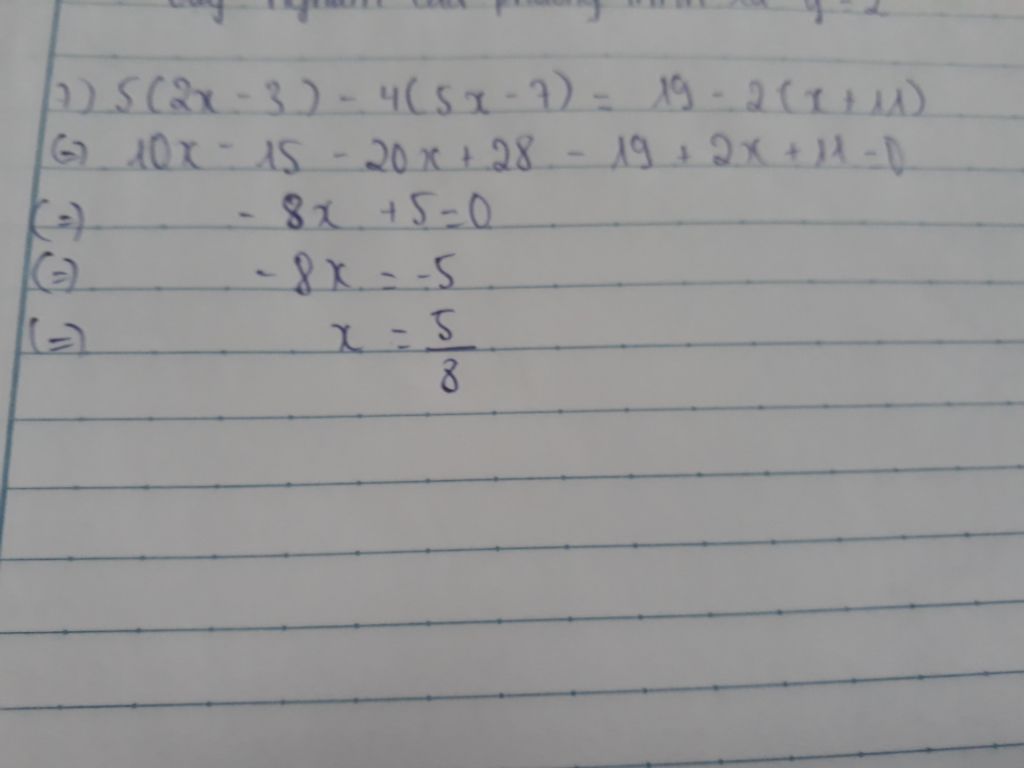 7) 5(2x - 3) - 4(5x - 7) = 19 - 2(x + 11)
(=) 10x - 15 - 20x + 28 - 19 + 2x + 11 = 0
(=) - 8x + 5 = 0
(=) - 8x = -5
(=) x = 5/8